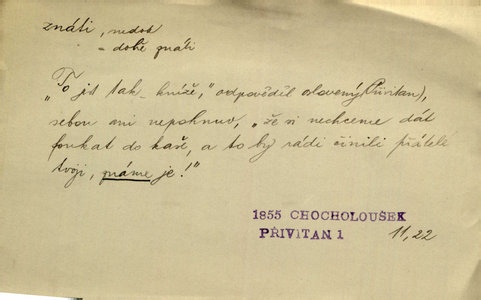 znáti, nedok
= dobře znáti
„To jst tak - kníže," odpověděl oslovený (Přivitan),
sebou ani nepohnuv, „že si nechceme dát
foukat do kaše, a to by rádi činili přátelé
tvoji, známe je!"
1855 CHOCHOLOUŠEK
PŘIVITAN 1 11,22